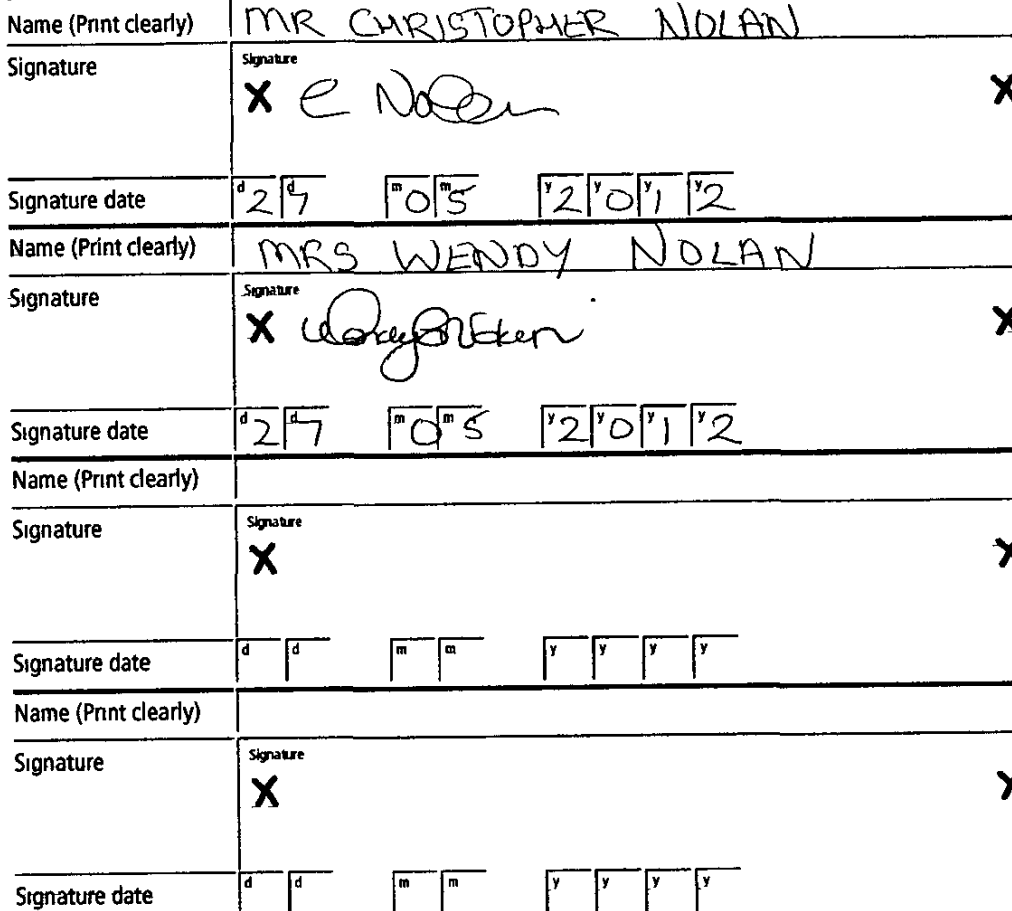 Name (Print clearly) MR CHRISTOPHER NOLAN
Signature Signature
X C Nolan X
Signature date d 2 d 7 m 0 m 5 y 2 y 0 y 1 y 2
Name (Print clearly) MRS WENDY NOLAN
Signature Signature
X X
Signature date d 2 d 7 m 0 m 5 y 2 y 0 y 1 y 2
Name (Print clearly)
Signature Signature
X X
Signature date d d m m y y y y
Name (Print clearly)
Signature Signature
X X
Signature date d d m m y y y y